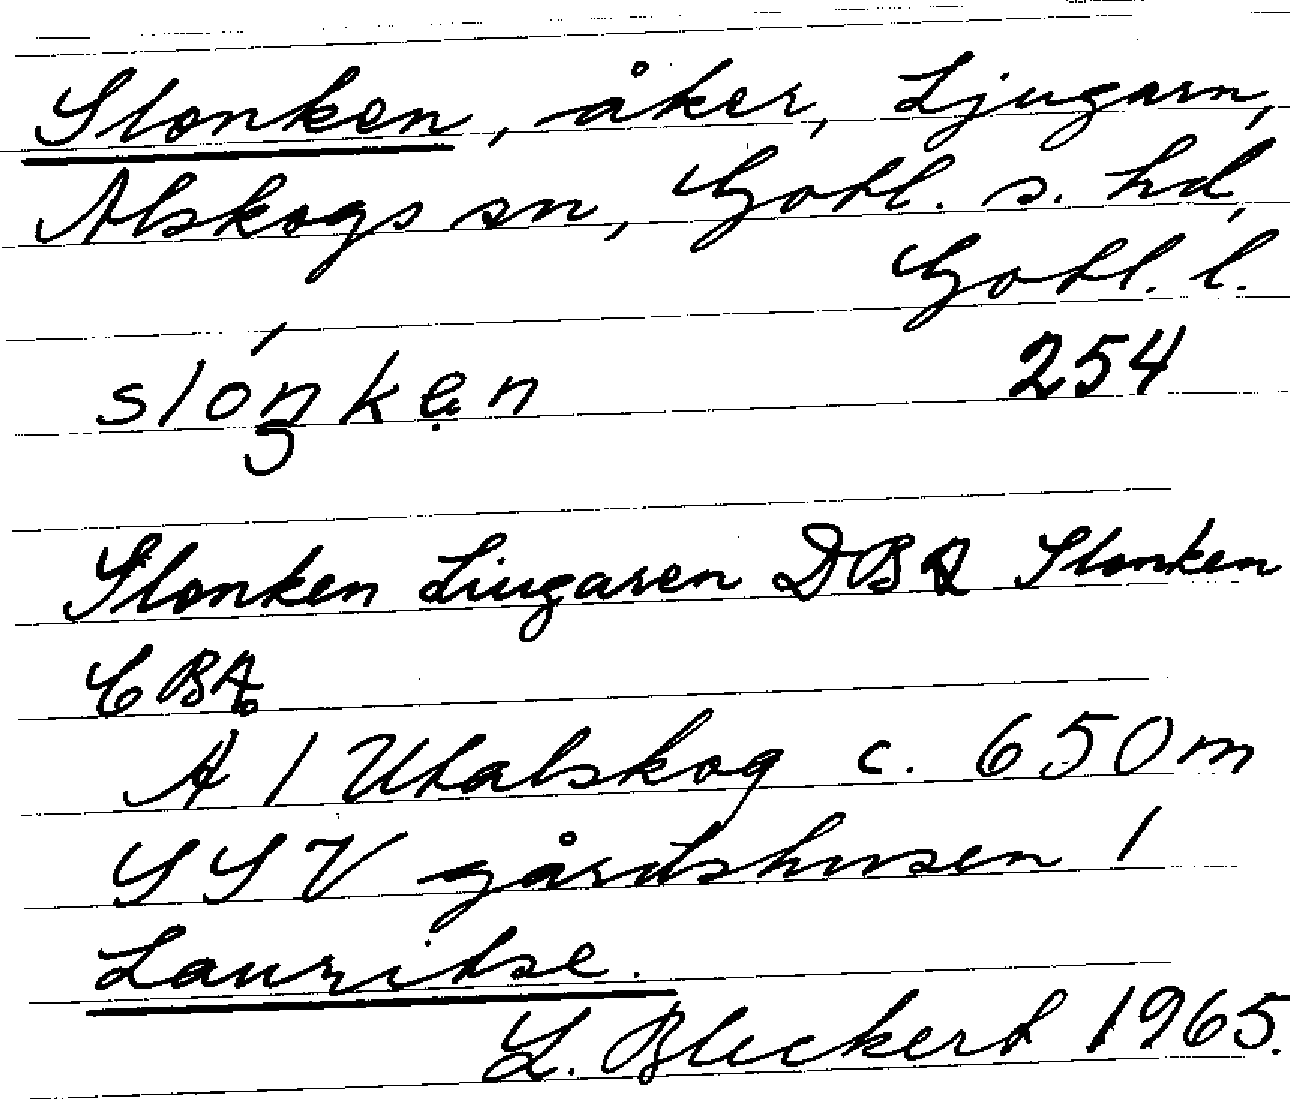 Slonken, åker, Ljugarn,
Alskogs sn, Gotl. s. hd,
Gotl. l.
slóŋkęn 254
Slonken Liugaren DBA Slonken
CBA.
Å l Utalskog c. 650 m
SSV gårdshusen l
Lauritse.
L. Bleckert 1965.